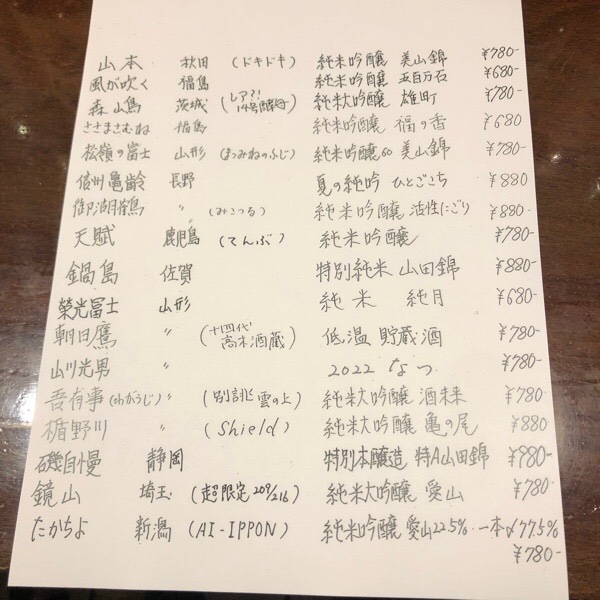 山本 秋田 (ドキドキ) 純米吟醸 美山錦 ¥780-
風が吹く 福島 純米吟醸 五百万石 ¥680-
森嶋 茨城 (レア?! 14号酵母) 純米大吟醸 雄町 ¥780-
ささまさむね 福島 純米吟醸 福の香 ¥680
松嶺の富士 山形 (まつみねのふじ) 純米吟醸60 美山錦 ¥780-
信州亀齢 長野 夏の純吟 ひとごこち ¥880
御湖鶴 〃 (みこつる) 純米吟醸 活性にごり ¥880-
天賦 鹿児島 (てんぶ) 純米吟醸 ¥780-
鍋島 佐賀 特別純米 山田錦 ¥880-
榮光冨士 山形 純米 純月 ¥680-
朝日鷹 〃 (十四代 高木酒蔵) 低温貯蔵酒 ¥780-
山川光男 〃 2022 なつ ¥780-
吾有事(わがうじ) 〃 (別誂 雲の上) 純米大吟醸 酒未来 ¥780-
楯野川 〃 (Shield) 純米大吟醸 亀の尾 ¥880
磯自慢 静岡 特別本醸造 特A山田錦 ¥980-
鏡山 埼玉 (超限定 209/216) 純米大吟醸 愛山 ¥780-
たかちよ 新潟 (AI-IPPON) 純米吟醸 愛山22.5% 一本〆77.5%
¥780-